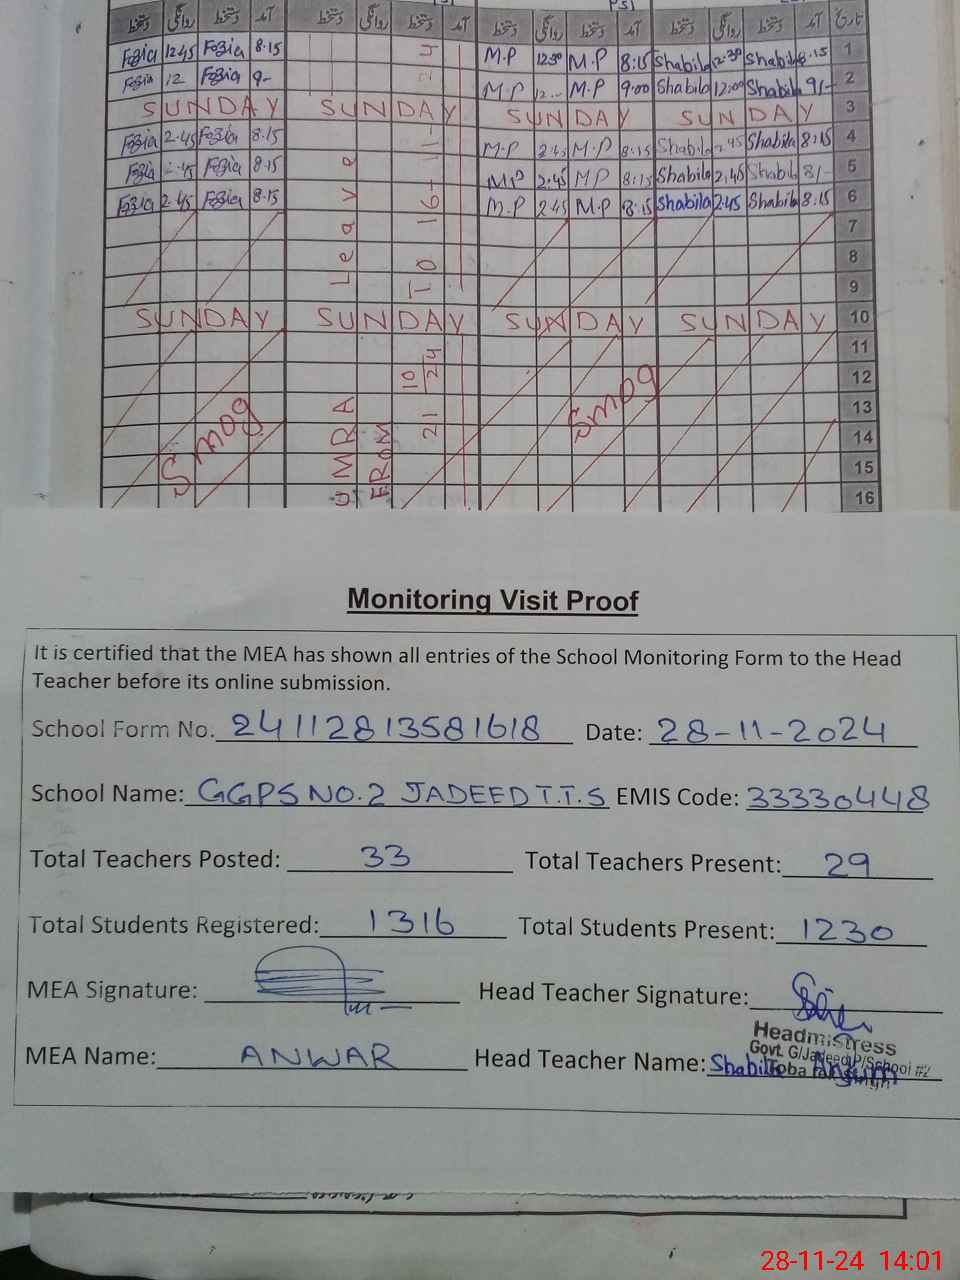 دستخط روانگی دستخط آمد دستخط روانگی دستخط آمد دستخط روانگی دستخط آمد دستخط روانگی دستخط آمد تاریخ
Fozia 12 45 Fozia 8·15 M.P 12 30 M.P 8:15 Shabila 2·30 Shabila 8:15 1
Fozia 12 Fozia 9- M.P 12 .. M.P 9:00 Shabila 12:00 Shabila 9/- 2
SUNDAY SUNDAY SUNDAY SUNDAY 3
Fozia 2·45 Fozia 8·15 M.P 2:45 M.P 8:15 Shabila 2:45 Shabila 8:15 4
Fozia 2·45 Fozia 8·15 M.P 2:45 M.P 8:15 Shabila 2,45 Shabila 8/- 5
Fozia 2·45 Fozia 8·15 M.P 2:45 M.P 8:15 Shabila 2:45 Shabila 8:15 6
7
8
9
SUNDAY SUNDAY SUNDAY SUNDAY 10
11
12
13
14
15
16
Smog
UMRA Leave
FROM 21 10/24 TO 16-11-24
Smog
Monitoring Visit Proof
It is certified that the MEA has shown all entries of the School Monitoring Form to the Head
Teacher before its online submission.
School Form No. 24112813581618 Date: 28-11-2024
School Name: GGPS NO.2 JADEED T.T.S EMIS Code: 33330448
Total Teachers Posted: 33 Total Teachers Present: 29
Total Students Registered: 1316 Total Students Present: 1230
MEA Signature: Head Teacher Signature:
MEA Name: ANWAR Head Teacher Name: Shabila Anjum
Headmistress
Govt. G/Jadeed P/School #2
Toba Tek Singh
28-11-24 14:01